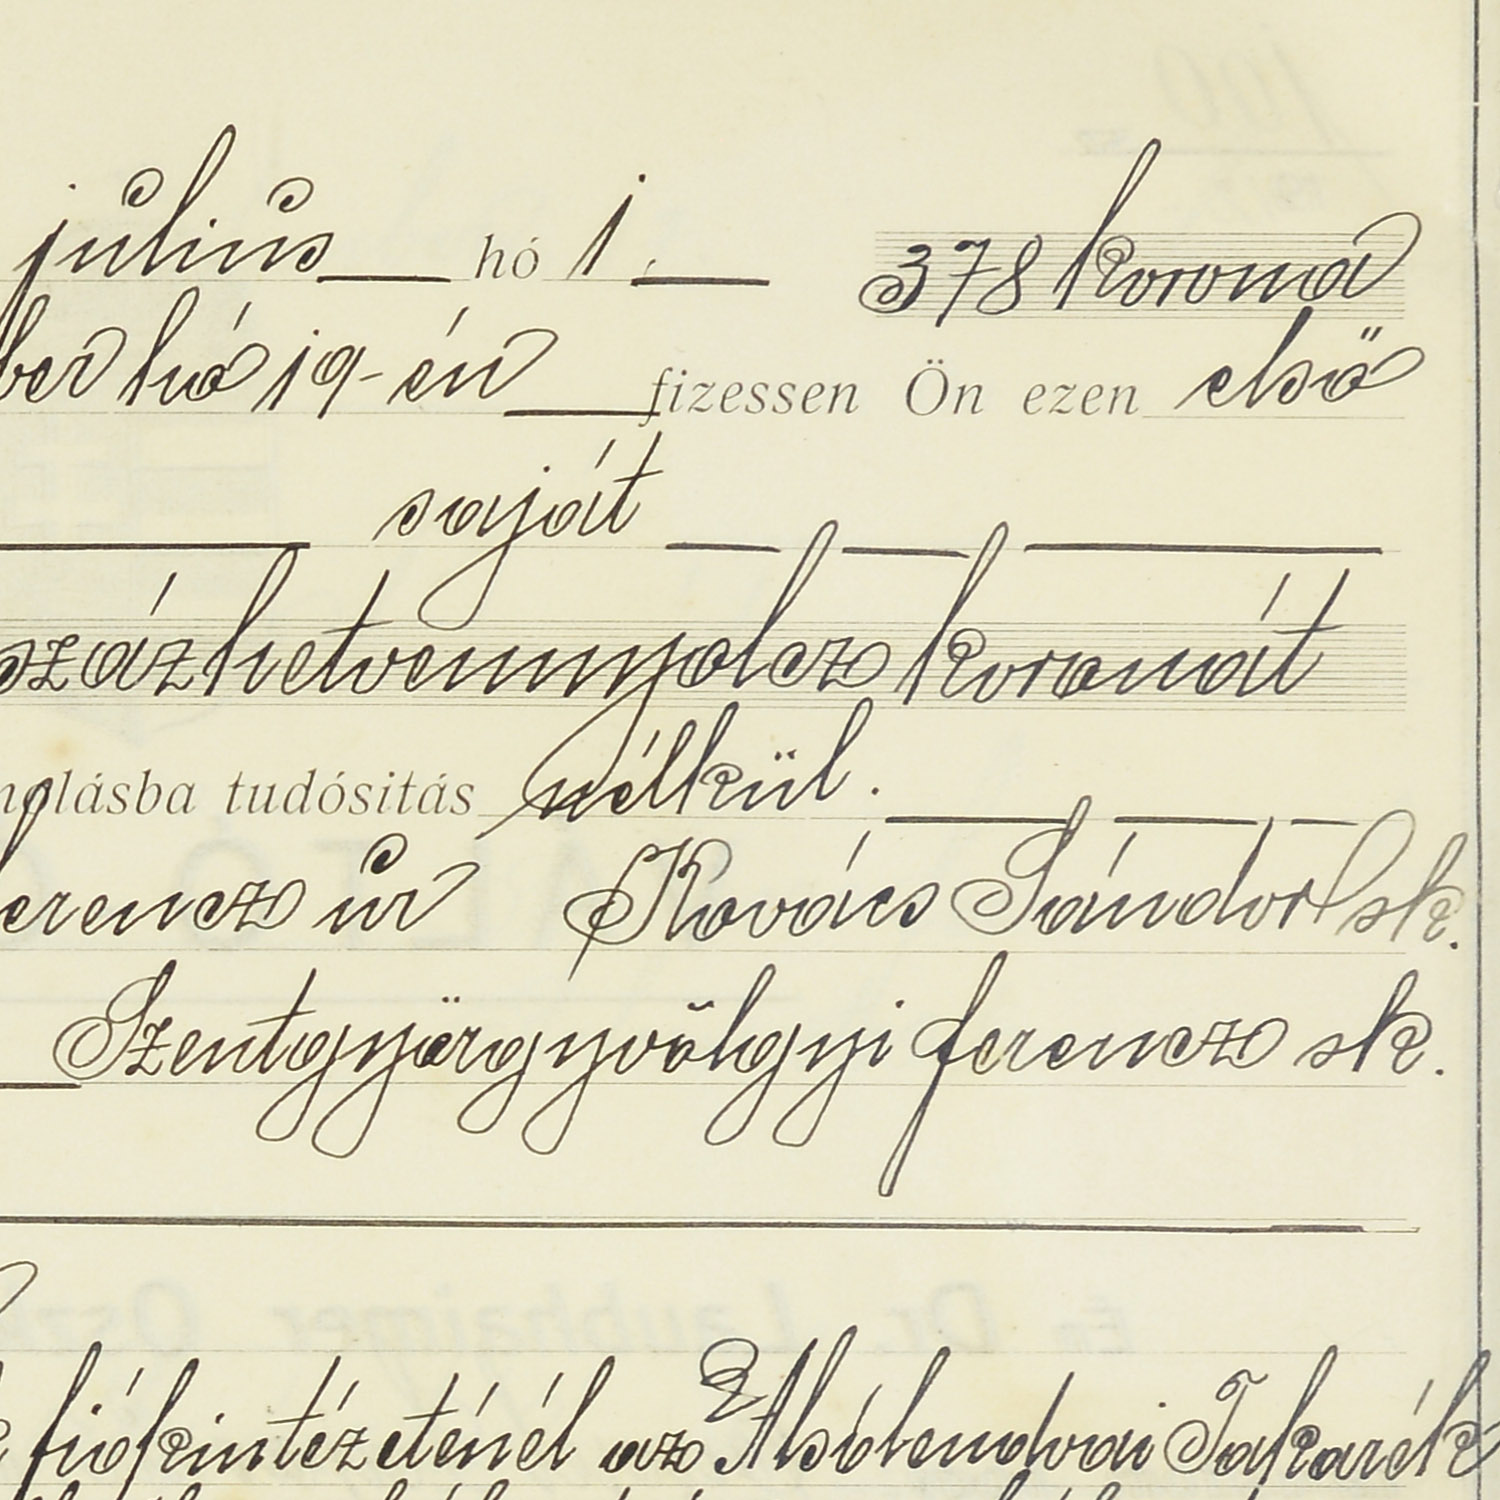 július hó 1. 378 korona
ber hó 19-én fizessen Ön ezen első
saját
százhetvennyolcz koronát
molásba tudósitás nélkül.
erencz úr Kovács Sándor sk.
Szentgyörgyvölgyi ferencz sk.
fiókintézeténél az Alsólendvai Takarék